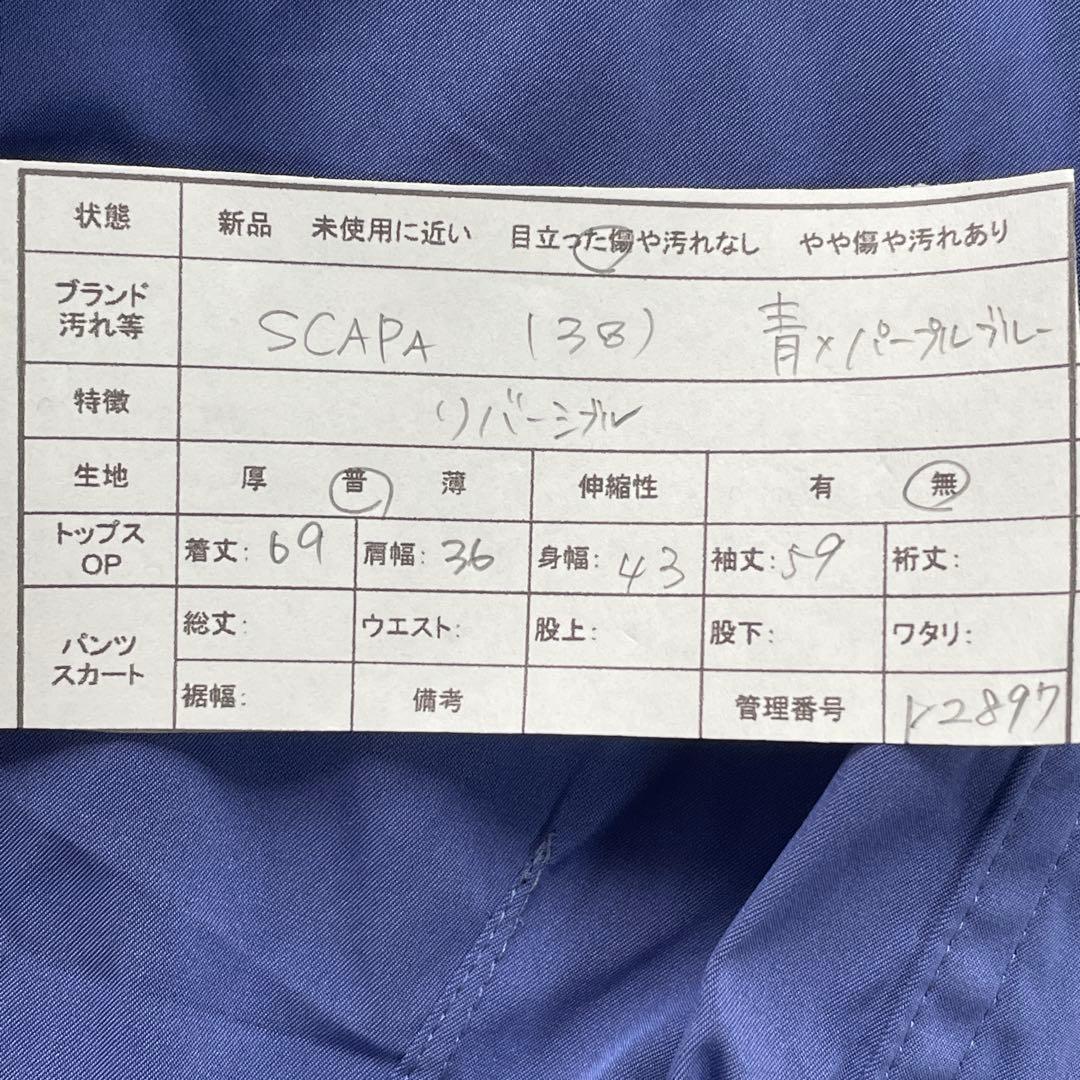 状態 新品 未使用に近い 目立った傷や汚れなし やや傷や汚れあり
ブランド
汚れ等 SCAPA (38) 青×パープルブルー
特徴 リバーシブル
生地 厚 普 薄 伸縮性 有 無
トップス
OP 着丈: 69 肩幅: 36 身幅: 43 袖丈: 59 裄丈:
パンツ
スカート 総丈: ウエスト: 股上: 股下: ワタリ:
裾幅: 備考 管理番号 ト2897